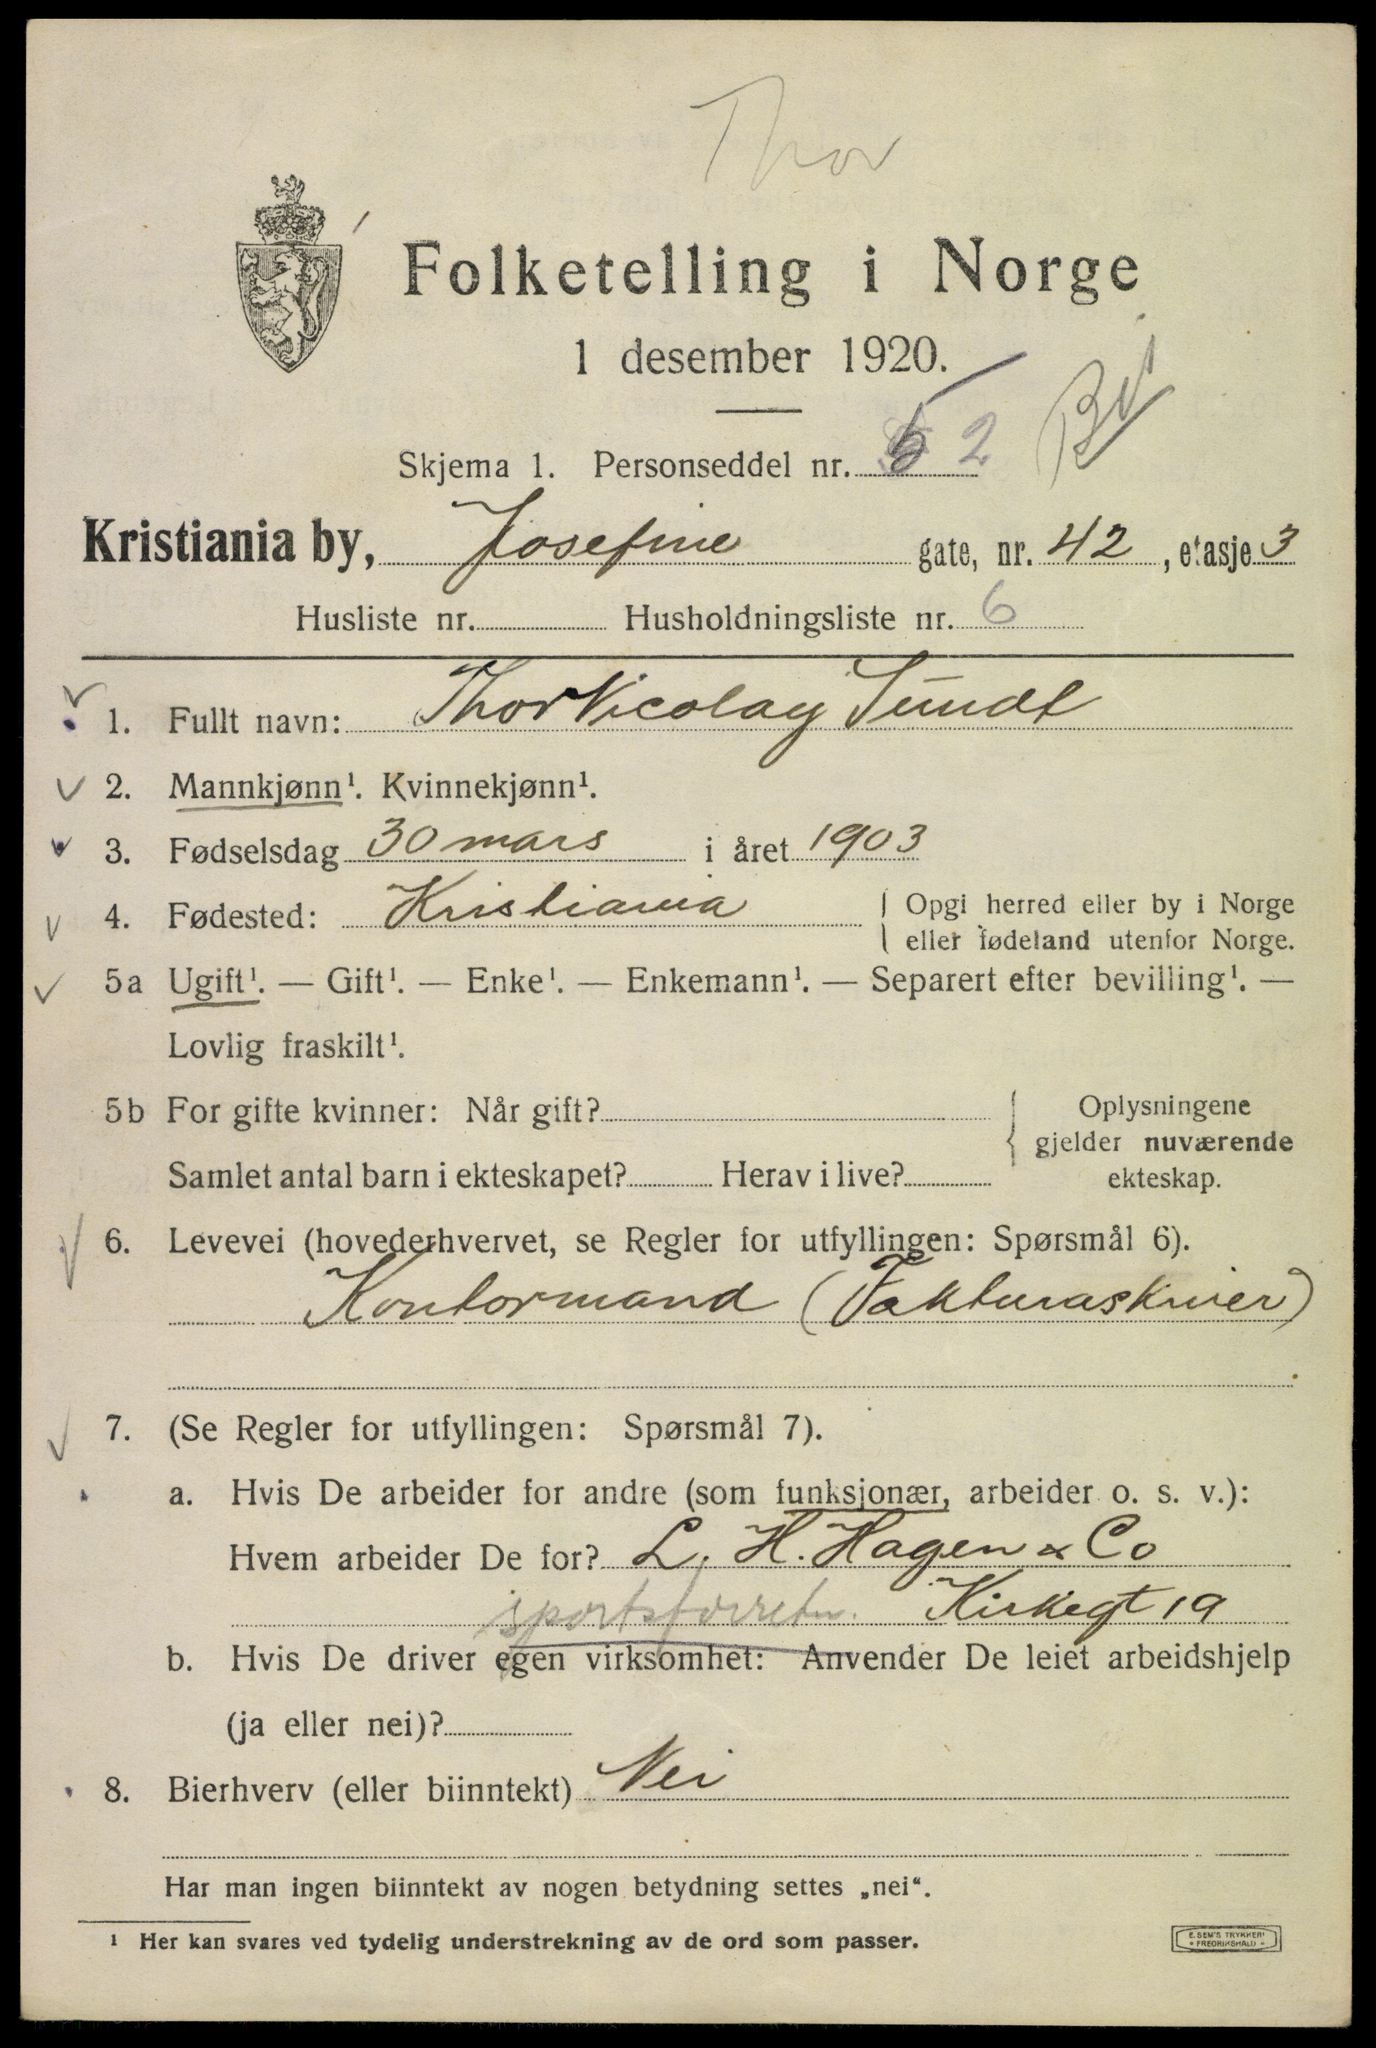 Thor
Folketelling i Norge
1 desember 1920.
Skjema 1. Personseddel nr. 2
Kristiania by, Josefine gate, nr. 42, etasje 3
Husliste nr. Husholdningsliste nr. 6
1. Fullt navn: Thor Nicolay Sundt
2. Mannkjønn¹. Kvinnekjønn¹.
3. Fødselsdag 30 mars i året 1903
4. Fødested: Kristiania Opgi herred eller by i Norge
eller fødeland utenfor Norge.
5a Ugift¹. — Gift¹. — Enke¹. — Enkemann¹. — Separert efter bevilling¹. —
Lovlig fraskilt¹.
5b For gifte kvinner: Når gift? Oplysningene
gjelder nuværende
Samlet antal barn i ekteskapet? Herav i live? ekteskap.
6. Levevei (hovederhvervet, se Regler for utfyllingen: Spørsmål 6).
Kontormand (Fakturaskriver)
7. (Se Regler for utfyllingen: Spørsmål 7).
a. Hvis De arbeider for andre (som funksjonær, arbeider o. s. v.):
Hvem arbeider De for? L. H. Hagen & Co
sportsforretn. Kirkegt 19
b. Hvis De driver egen virksomhet: Anvender De leiet arbeidshjelp
(ja eller nei)?
8. Bierhverv (eller biinntekt) Nei
Har man ingen biinntekt av nogen betydning settes „nei“.
¹ Her kan svares ved tydelig understrekning av de ord som passer.
E. SEM'S TRYKKERI
FREDRIKSHALD